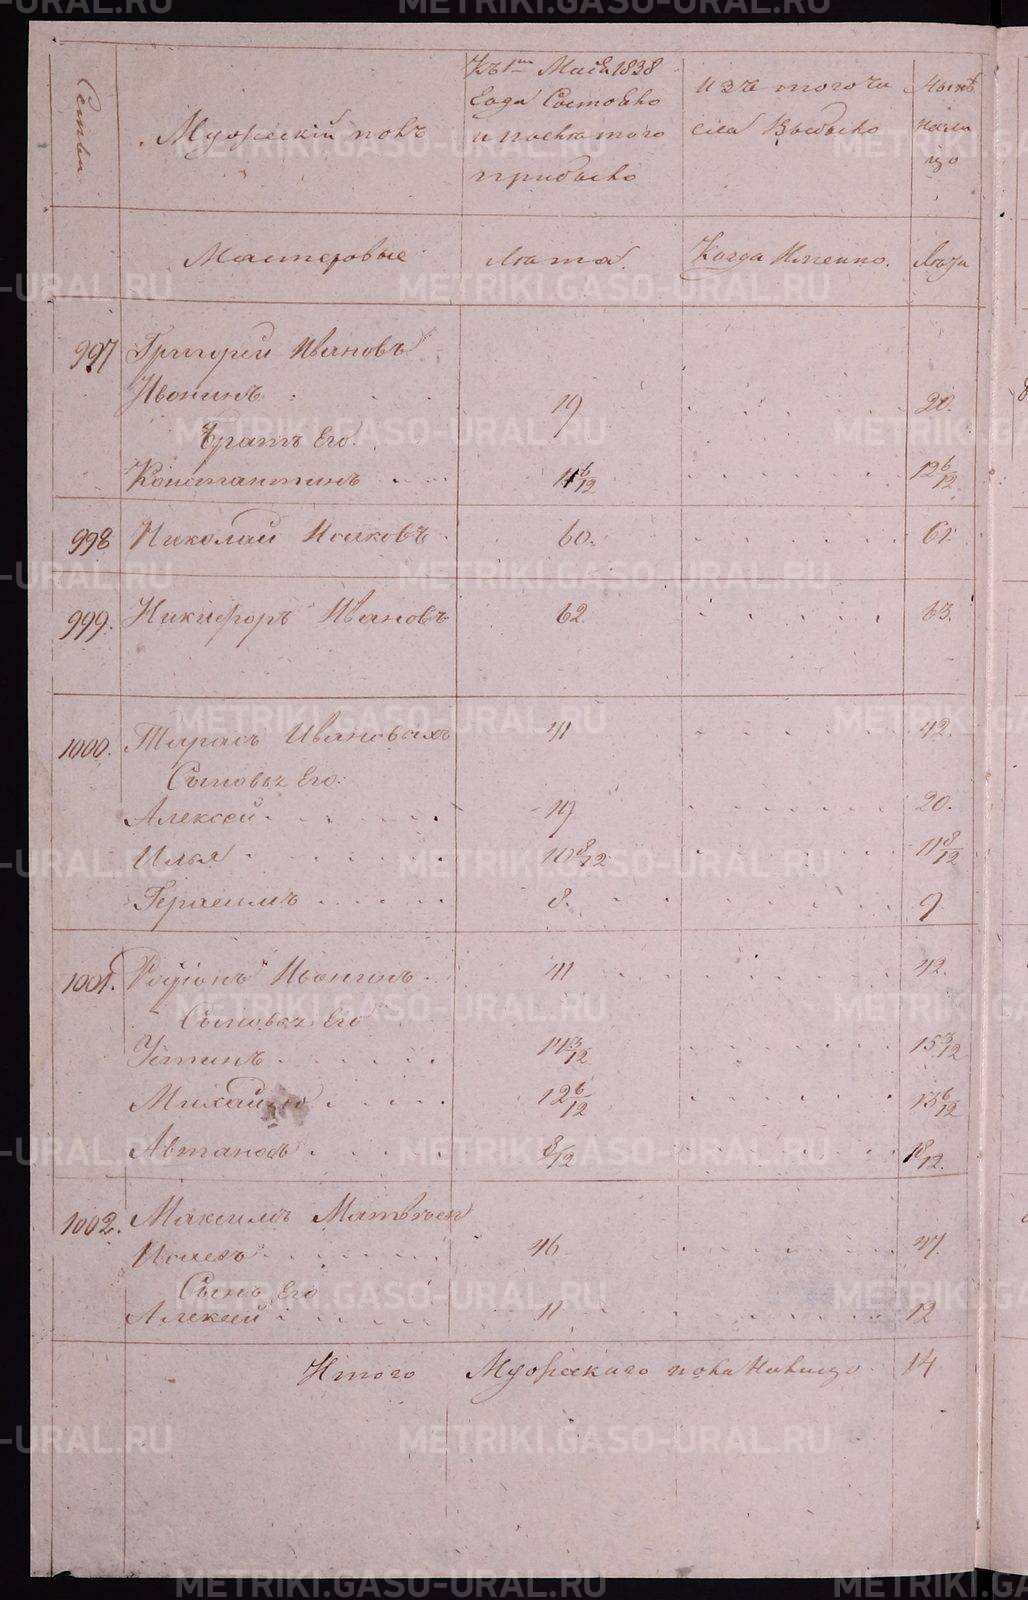 Семьи
Мужескій полъ
Къ 1му Маія 1838
года Состояло
и послѣ того
прибыло
изъ того чи
сла Выбыло
Нынѣ
нали
цо
Мастеровые
Лѣта.
Когда Именно.
Лѣта
997 Григорей Ивановъ
Ивонинъ 19 20.
Братъ Его.
Константинъ 11 6/12 12 6/12
998 Николай Исаковъ 60. 61.
999. Никифоръ Ивановъ 62. 63.
1000. Тарасъ Ивановыхъ 41 42.
Сыновья Его.
Алексей 19 20.
Илья 10 8/12 11 8/12
Герасимъ 8. 9.
1001. Родіонъ Ивонинъ 41 42.
Сыновья Его
Устинъ 14 3/12 15 3/12
Михайло 12 6/12 13 6/12
Автаномъ 8/12 1 8/12.
1002. Максимъ Матвѣевъ
46 47.
Сынъ Его
Алексей 11 12
Итого Мужескаго пола Налицо 14
METRIKI.GASO-URAL.RU